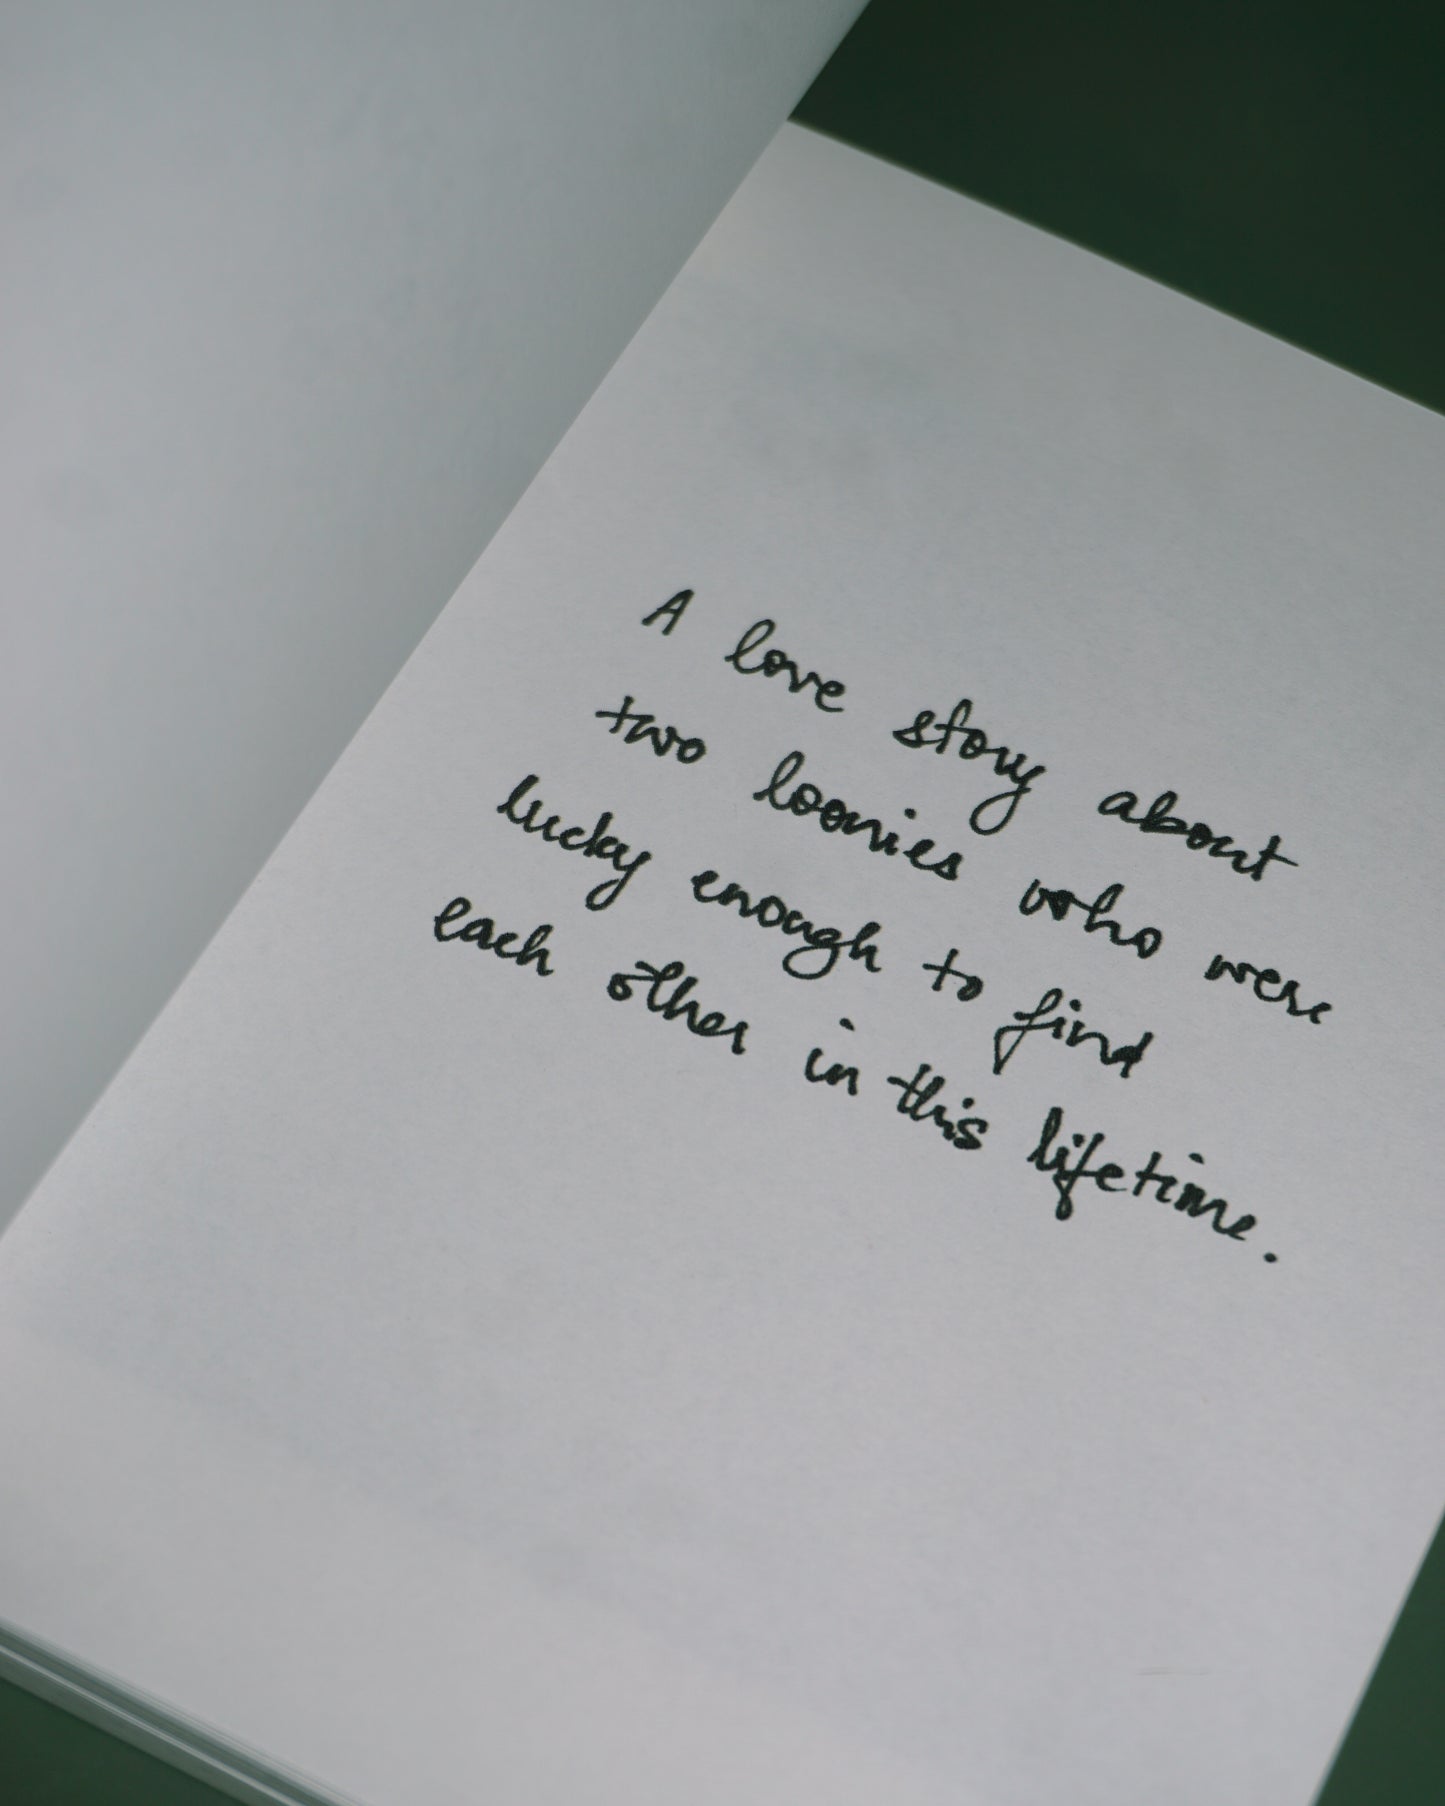 A love story about
two loonies who were
lucky enough to find
each other in this lifetime.